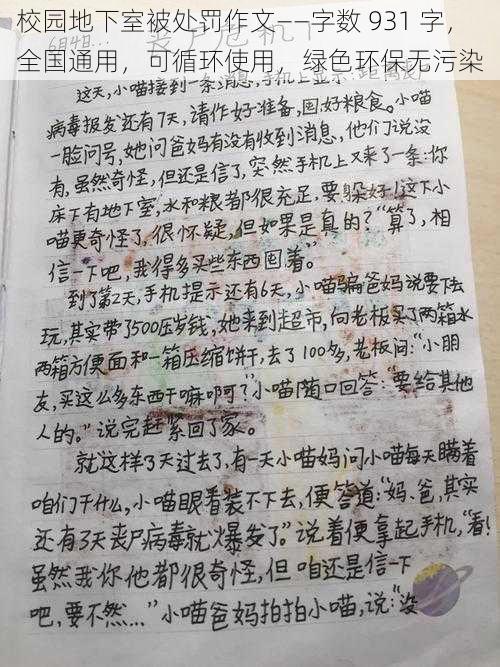 校园地下室被处罚作文——字数 931 字，
全国通用，可循环使用，绿色环保无污染
这天,小喵接到一条消息,手机上显示:距离丧尸
病毒报发还有7天,请作好准备,囤好粮食。小喵
一脸问号,她问爸妈有没有收到消息,他们说没
有,虽然奇怪,但还是信了,突然手机上又来了一条:你
床下有地下室,水和粮都很充足,要躲好!这下小
喵更奇怪了,很怀疑,但如果是真的?“算了,相
信一下吧,我得多买些东西囤着。”
到了第2天,手机提示还有6天,小喵骗爸妈说要下去
玩,其实带了500压岁钱,她来到超市,向老板买了两箱水
两箱方便面和一箱压缩饼干,去了100多,老板问:“小朋
友,买这么多东西干嘛啊?”小喵随口回答:“要给其他
人的。”说完赶紧回了家。
就这样3天过去了,有一天小喵妈问小喵每天瞒着
咱们干什么,小喵眼看装不下去,便答道:“妈、爸,其实
还有3天丧尸病毒就爆发了。”说着便拿起手机,“看!
虽然我你他都很奇怪,但咱还是信一下
吧,要不然…”小喵爸妈拍拍小喵,说:“没